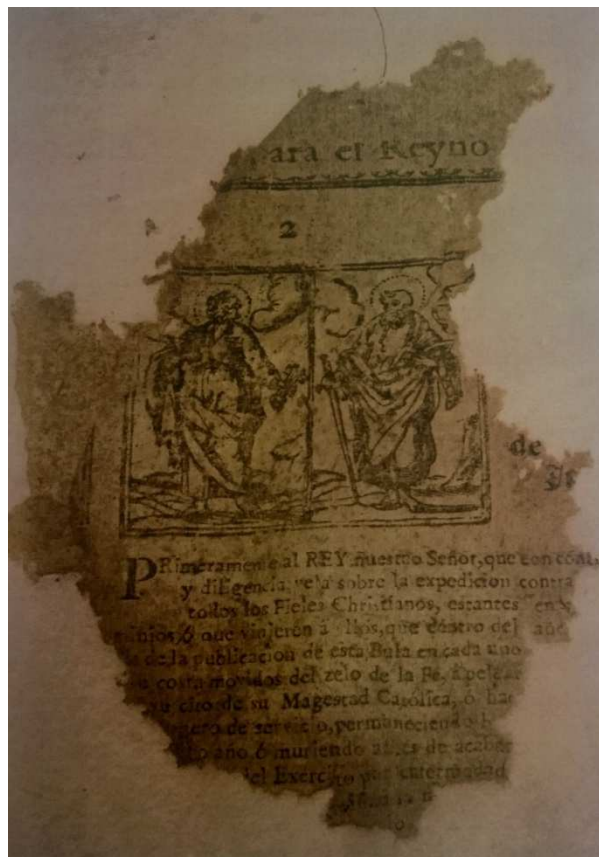 ara el Reyno
2
de
PRimeramente al REY nuestro Señor, que con
y diligencia, vela sobre la expedicion contra
todos los Fieles Christianos, estantes en
minios, ó que vinjeren à ellos, que dentro del año
de la publicacion de esta Bula en cada uno
costa movidos del zelo de la Fè, à pelear
cito de su Magestad Catolica, ó
nero de servicio, permaneciendo
año ó muriendo antes de acabar
del Exercito por enfermedad